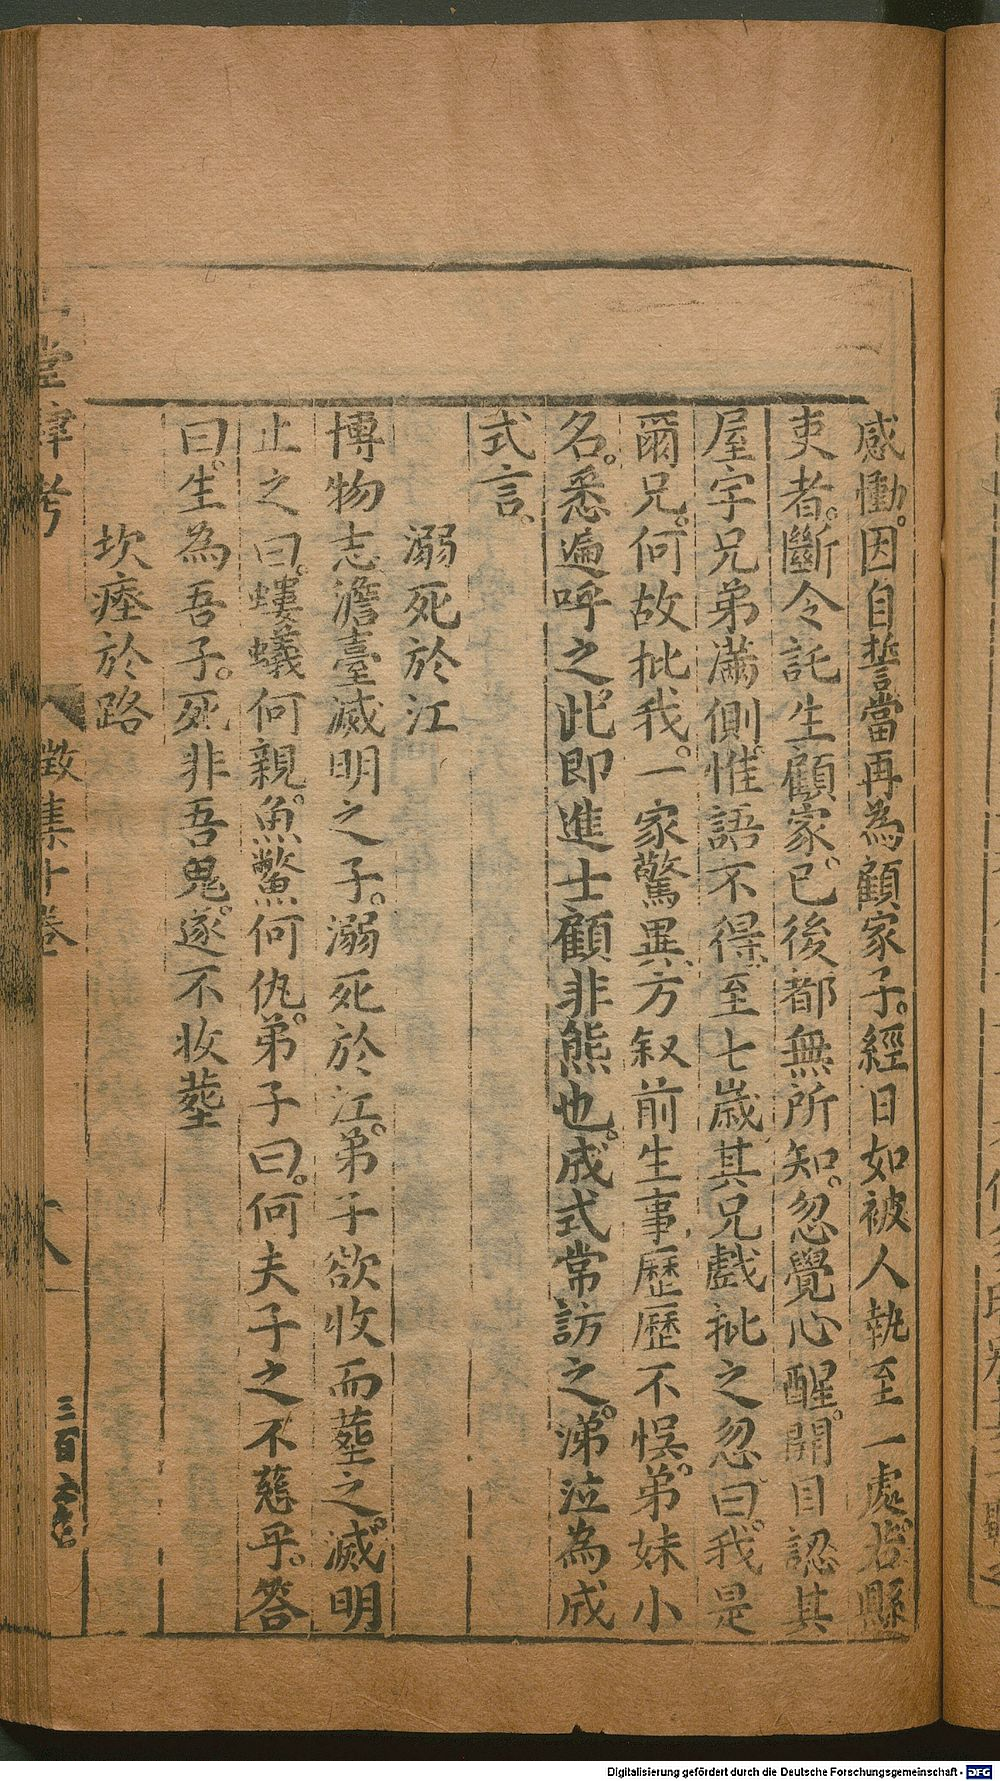 感慟。因自誓當再為顧家子。經日如被人執至一處。若縣
吏者。斷令託生顧家。已後都無所知。忽覺心醒。開目認其
屋宇兄弟滿側。惟語不得。至七歲其兄戲批之忽曰。我是
爾兄。何故批我。一家驚異。方叙前生事。歷歷不悞。弟妹小
名。悉遍呼之。此即進士顧非熊也。成式常訪之。涕泣為成
式言。
溺死於江
博物志。澹臺滅明之子。溺死於江。弟子欲收而塟之。滅明
止之曰。螻蟻何親。魚鱉何仇。弟子曰。何夫子之不慈乎。答
曰。生為吾子。死非吾鬼。遂不收塟
坎瘞於路
堂肆考
徵集十卷
三百
Digitalisierung gefördert durch die Deutsche Forschungsgemeinschaft - DFG